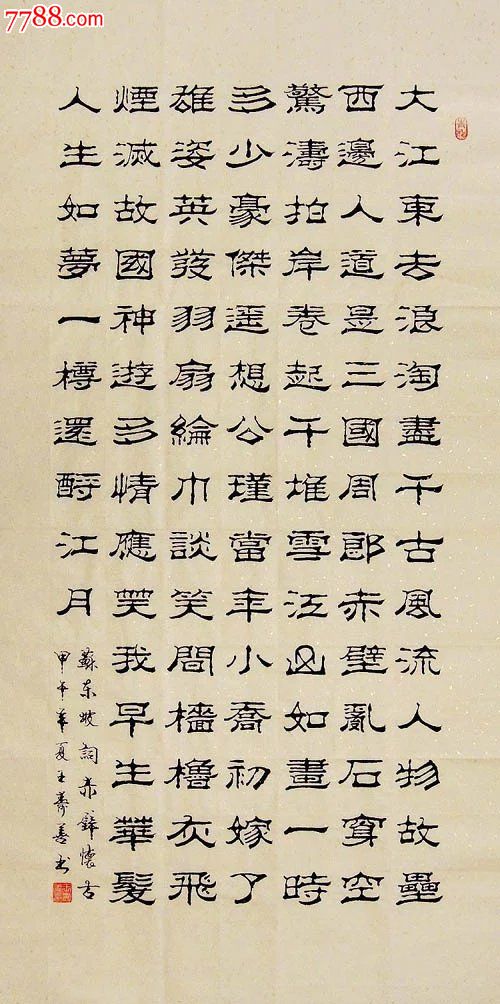 7788.com
大江東去浪淘盡千古風流人物故壘
西邊人道是三國周郎赤壁亂石穿空
驚濤拍岸卷起千堆雪江山如畫一時
多少豪傑遥想公瑾當年小喬初嫁了
雄姿英發羽扇綸巾談笑間檣櫓灰飛
煙滅故國神遊多情應笑我早生華髮
人生如夢一樽還酹江月
蘇东坡詞赤壁懷古
甲午夏王壽善书